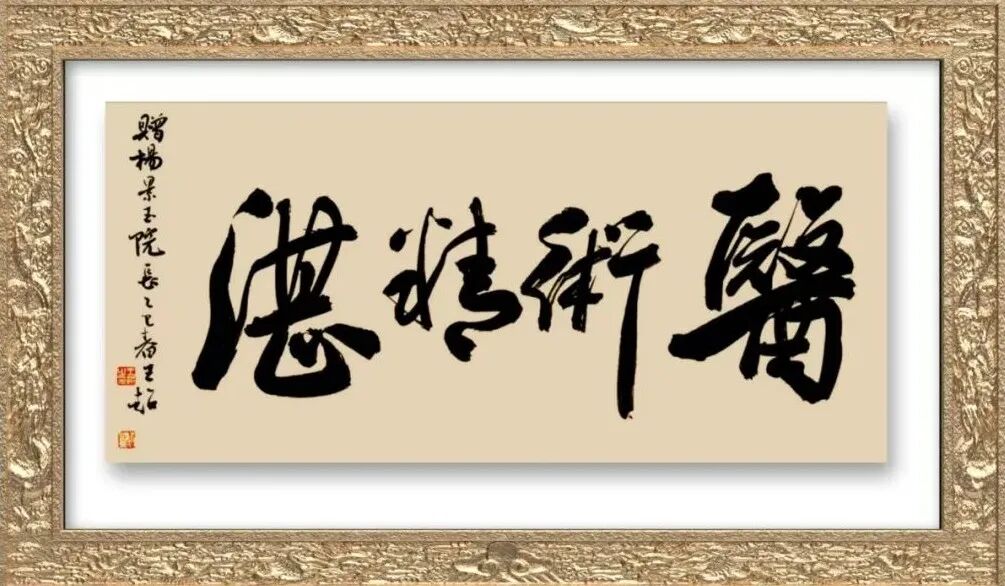 醫術精湛
贈楊景玉院長乙巳春王超